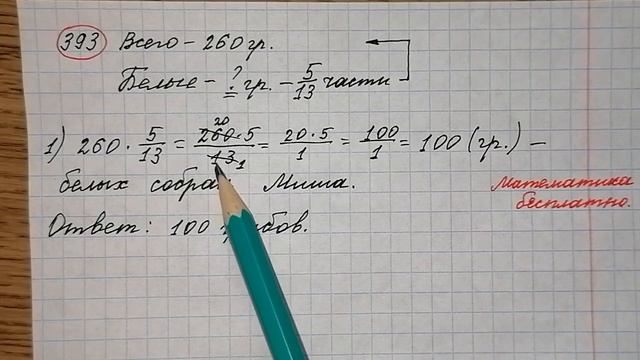 393 Всего – 260 гр.
Белые – ? гр. – 5/13 части
1) 260 · 5/13 = 260 · 5/13 = 20 · 5/1 = 100/1 = 100 (гр.) –
20 1
белых Миша.
Ответ: 100
Математика
бесплатно.